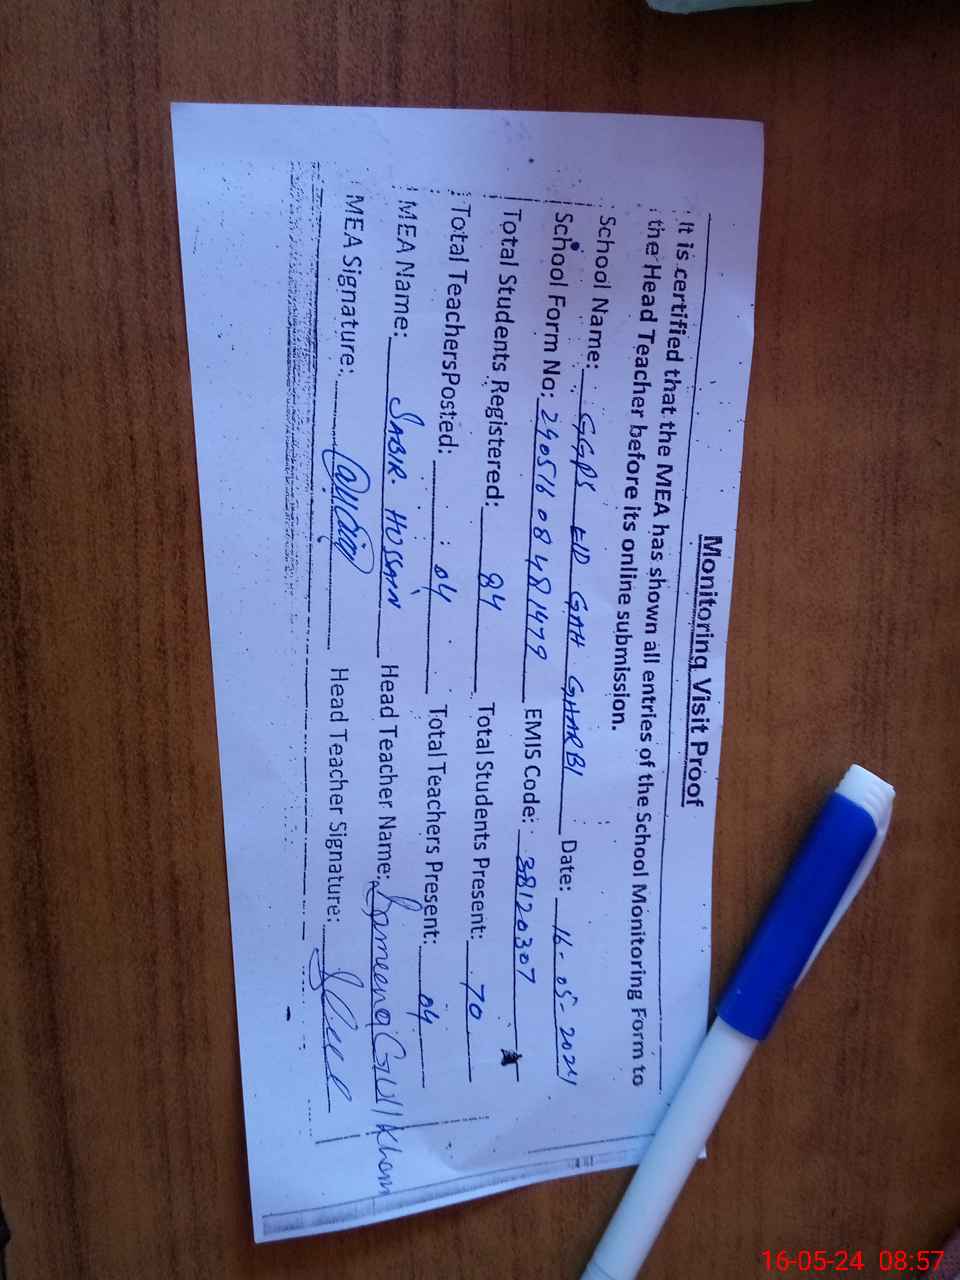 Monitoring Visit Proof
It is certified that the MEA has shown all entries of the School Monitoring Form to
the Head Teacher before its online submission.
School Name: GGPS EID GAH GHARBI Date: 16-05-2024
School Form No: 240516 08481479 EMIS Code: 38120307
Total Students Registered: 84 Total Students Present: 70
Total TeachersPosted: 04 Total Teachers Present: 04
MEA Name: SABIR HUSSAIN Head Teacher Name: Sameena Gull Khan
MEA Signature: Head Teacher Signature:
16-05-24 08:57